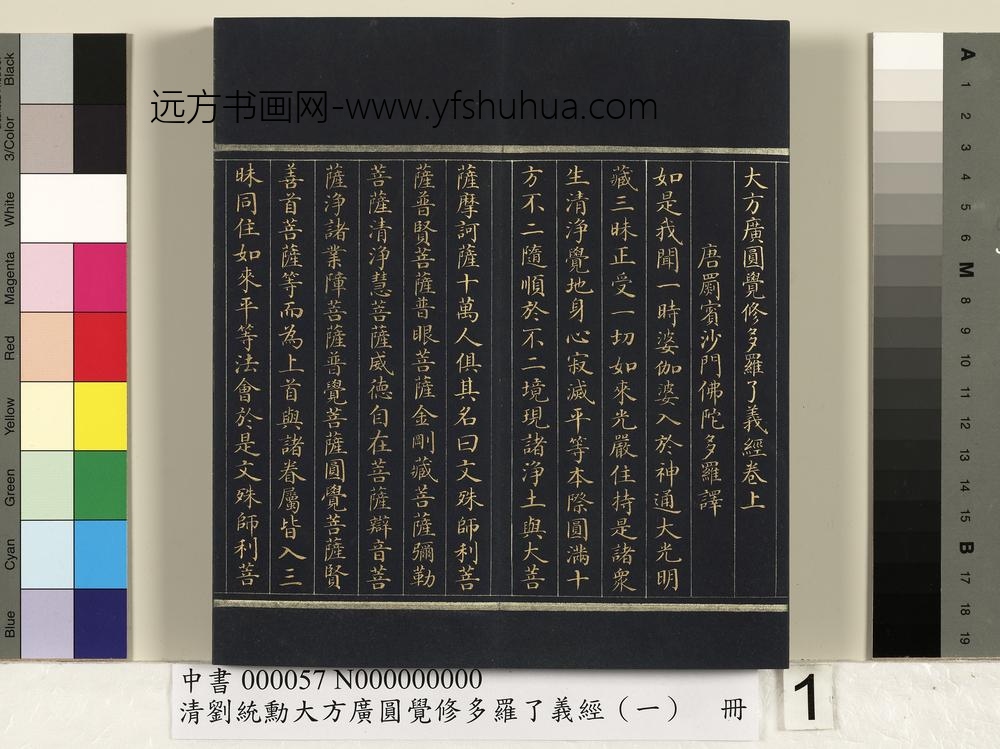 远方书画网-www.yfshuhua.com
大方廣圓覺修多羅了義經卷上
唐罽賓沙門佛陀多羅譯
如是我聞一時婆伽婆入於神通大光明
藏三昧正受一切如來光嚴住持是諸眾
生清淨覺地身心寂滅平等本際圓滿十
方不二隨順於不二境現諸淨土與大菩
薩摩訶薩十萬人俱其名曰文殊師利菩
薩普賢菩薩普眼菩薩金剛藏菩薩彌勒
菩薩清淨慧菩薩威德自在菩薩辯音菩
薩淨諸業障菩薩普覺菩薩圓覺菩薩賢
善首菩薩等而為上首與諸眷屬皆入三
昧同住如來平等法會於是文殊師利菩
Black
3/Color
White
Magenta
Red
Yellow
Green
Cyan
Blue
A
1
2
3
4
5
6
M
8
9
10
11
12
13
14
15
B
17
18
19
中書 000057 N000000000
清劉統勳大方廣圓覺修多羅了義經（一） 冊
1